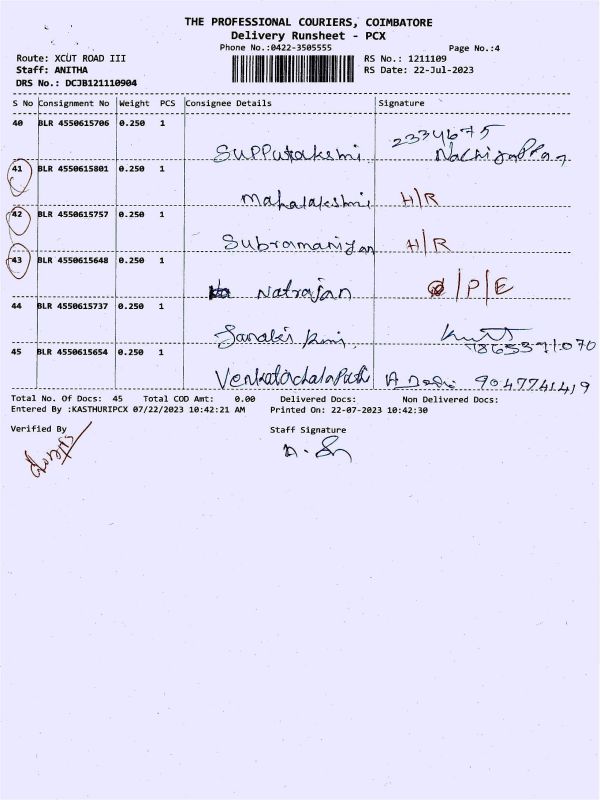 THE PROFESSIONAL COURIERS, COIMBATORE
Delivery Runsheet - PCX
Phone No.:0422-3505555
Page No.:4
Route: XCUT ROAD III
RS No.: 1211109
Staff: ANITHA
RS Date: 22-Jul-2023
DRS No.: DCJB121110904
S No Consignment No Weight PCS Consignee Details Signature
40 BLR 4550615706 0.250 1
2334675
41 BLR 4550615801 0.250 1
Mahalakshmi H/R
42 BLR 4550615757 0.250 1
Subramaniyan H/R
43 BLR 4550615648 0.250 1
Natrajan /P/E
44 BLR 4550615737 0.250 1
45 BLR 4550615654 0.250 1
Venkatachalapathi 9047741419
Total No. Of Docs: 45 Total COD Amt: 0.00 Delivered Docs: Non Delivered Docs:
Entered By :KASTHURIPCX 07/22/2023 10:42:21 AM Printed On: 22-07-2023 10:42:30
Verified By Staff Signature